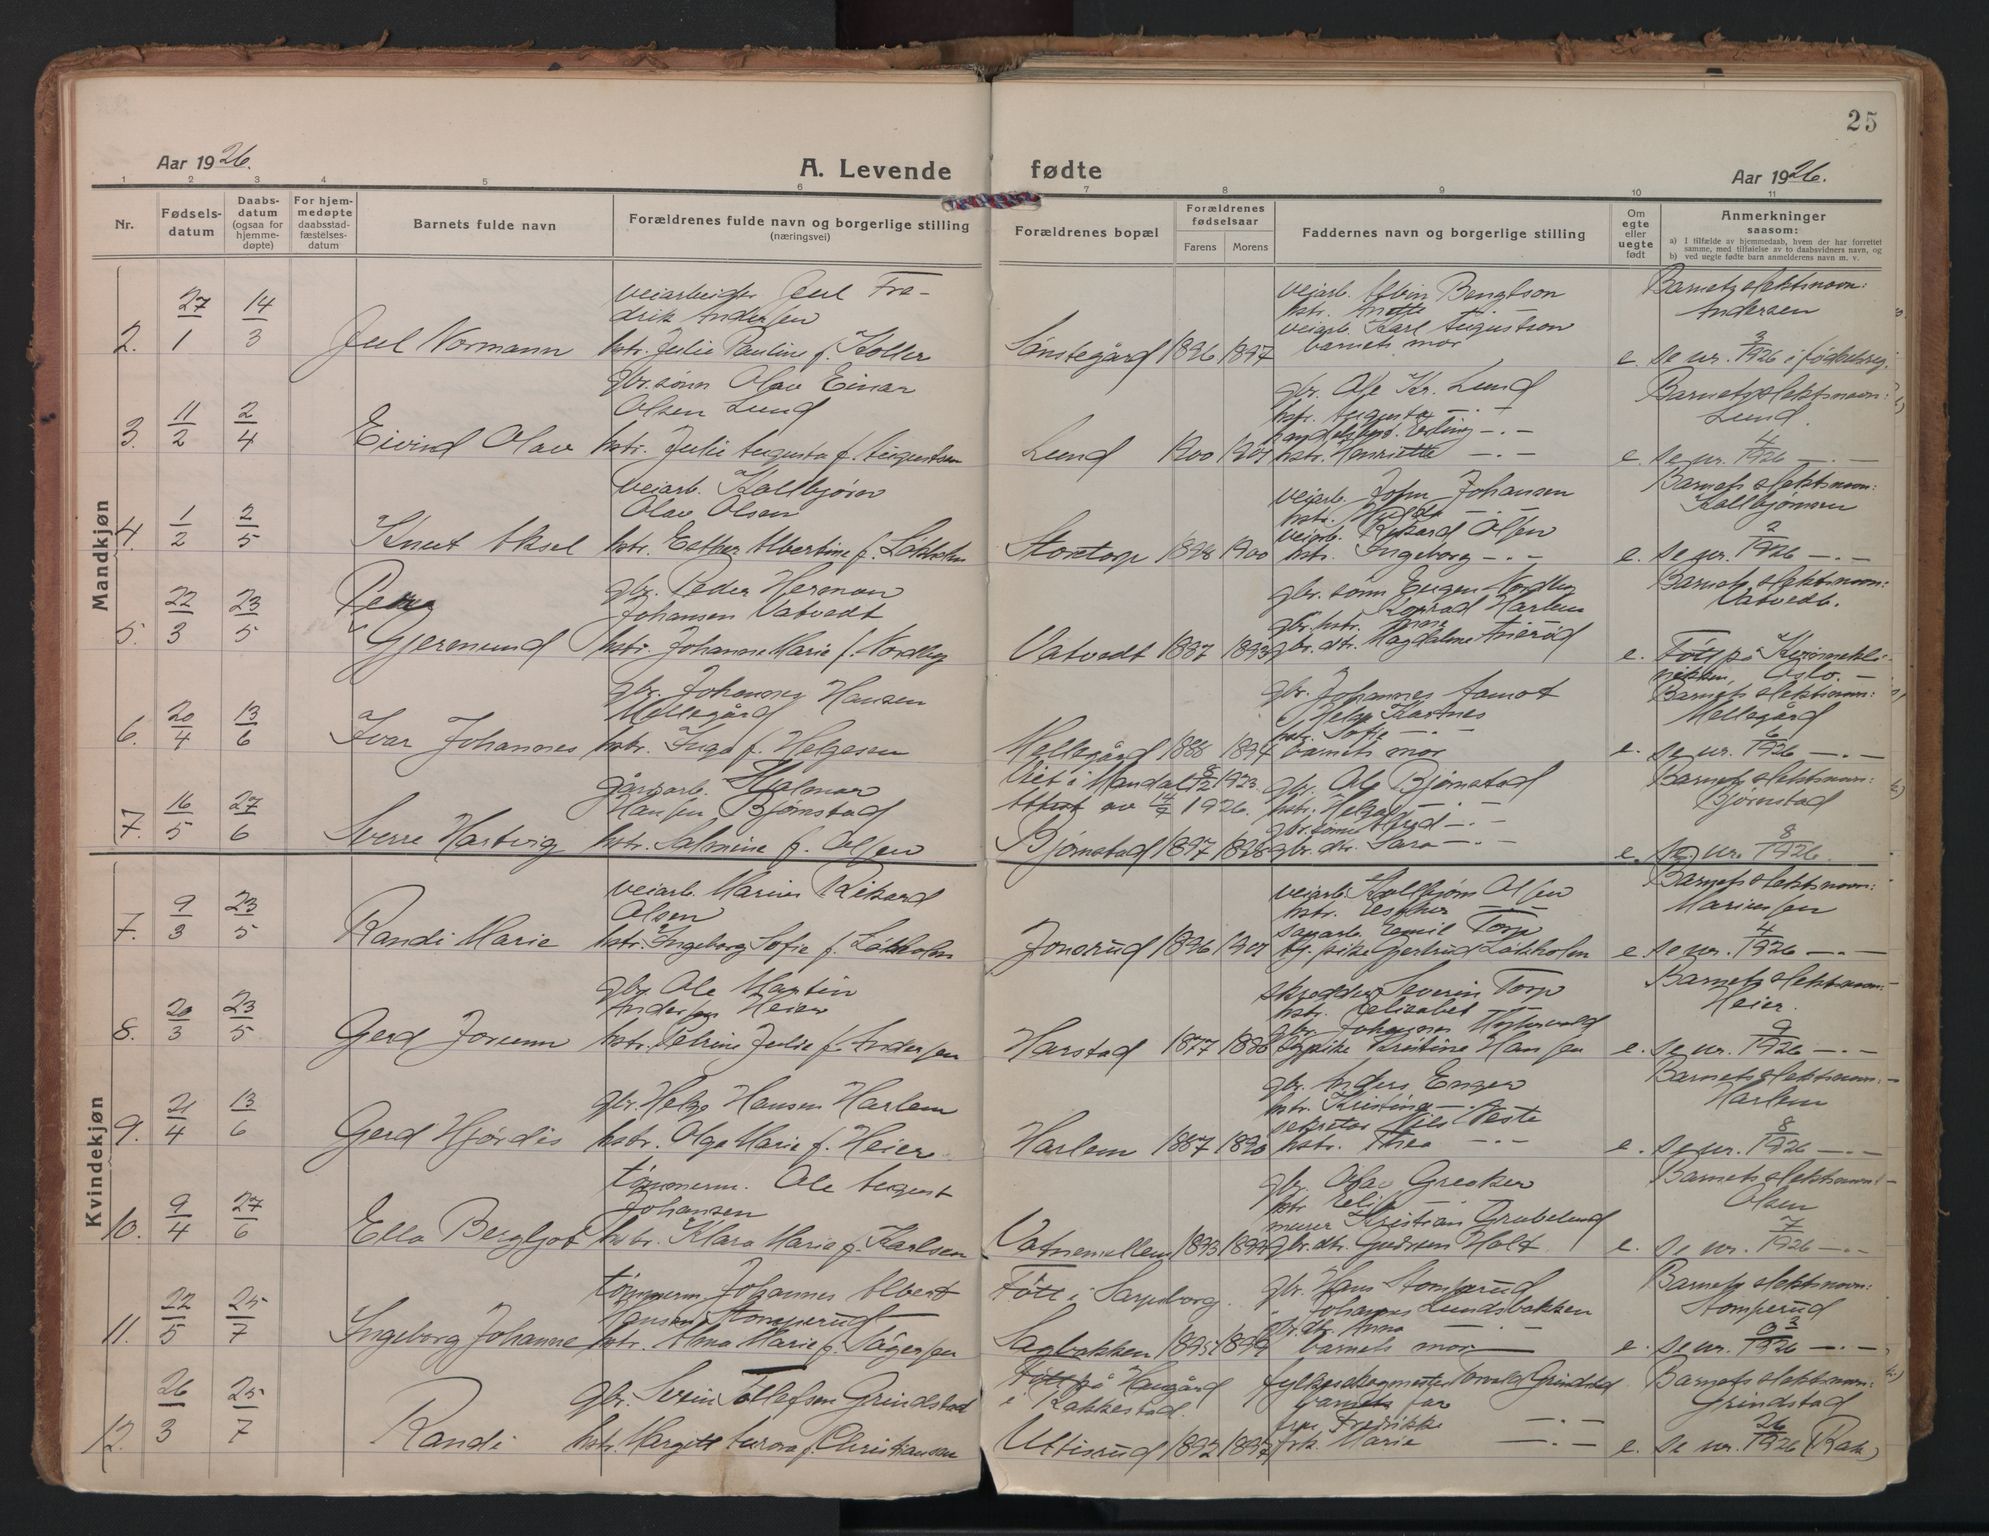 25
Aar 1926.
A. Levende fødte
Aar 1926.
1 2 3 4 5 6 7 8 9 10 11
Nr.
Fødsels-
datum
Daabs-
datum
(ogsaa for
hjemme-
døpte)
For hjem-
medøpte
daabsstad-
fæstelses-
datum
Barnets fulde navn
Forældrenes fulde navn og borgerlige stilling
(næringsvei)
Forældrenes bopæl
Forældrenes
fødselsaar
Farens Morens
Faddernes navn og borgerlige stilling
Om
egte
eller
uegte
født
Anmerkninger
saasom:
a) I tilfælde av hjemmedaab, hvem der har forrettet
samme, med tilføielse av to daabsvidners navn, og
b) ved uegte fødte barn anmelderens navn m. v.
Mandkjøn
27 14 veiarbeider Juul Fre- veiarb. Albin Bengtson Barnets slektsnavn:
drik Andersen hstr. Anette — Andersen
veiarb. Karl Augustson
2. 1 3 Juul Normann hstr. Julie Pauline f. Koller 1896 1897 barnets mor e. Se nr. 3/1926 i fødselsreg.
gbr.sønn Olav Einar gbr. Ole Kr. Lund Barnets slektsnavn:
11 2 Olsen Lund hstr. Augusta — Lund.
3. 2 4 Eivind Olav hstr. Julie Augusta f. Augustsen Lund 1900 1901 hstr. Henriette —.— e. Se nr. 4/1926 —.—
veiarb. Kollbjørn veiarb. John Johansen Barnets slektsnavn:
1 2 Olav Olsen hstr. Kollbjørnsen
veiarb. Rikard Olsen
4. 2 5 Knut Aksel hstr. Esther Albertine f. Løkholm Storetorp 1898 1900 hstr. Ingeborg —.— e. Se nr. 2/1926 —.—
22 23 gbr. Peder Herman gbr. sønn Eugen Nordby Barnets slektsnavn:
Johansen Vatvedt Konrad Harlem Vatvedt.
5. 3 5 Gjermund hstr. Johanne Marie f. Nordby Vatvedt 1887 1893 gbr. dtr. Magdalene e. Født på Kvinnekli-
nikken, Oslo. —
gbr. Johannes Hansen gbr. Johannes Aamot Barnets slektsnavn:
20 13 Mellegård Helge Karlnes Mellegård
hstr. Sofie —.—
6. 4 6 Ivar Johannes hstr. Inga f. Helgesen Mellegård 1888 1894 barnets mor e. Se nr. 6/1926 —.—
gårdarb. Hjalmar Viet i Mandal 8/12 1923. gbr. Ole Bjørnstad Barnets slektsnavn:
16 27 Hansen Bjørnstad Attest av 14/7 1926. hstr. Helga —.— Bjørnstad
gbr.sønn —.—
7. 5 6 Sverre Hartvig hstr. Salmine f. Olsen Bjørnstad 1897 1898 gbr. dtr. Sara —.— e. Se nr. 8/1926.
Kvindekjøn
9 23 veiarb. Marius Rikard veiarb. Kollbjørn Olsen Barnets slektsnavn:
Olsen hstr. Esther —.— Mariussen
Emil Torp
7. 3 5 Randi Marie hstr. Ingeborg Sofie f. Løkholm Jonsrud 1896 1901 pike Gertrud Løkholm e. Se nr. 4/1926 —.—
20 23 gbr. Ole Martin skredder Severin Torp Barnets slektsnavn:
Andersen Heier hstr. Elisabet — Heier.
gbr. Johannes
8. 3 5 Gerd Jorunn hstr. Petrine Julie f. Andersen Harstad 1877 1886 pike Kristine Hansen e. Se nr. 9/1926 —.—
21 13 gbr. Helge Hansen Harlem gbr. Anders Enger Barnets slektsnavn:
hstr. Kristine —.— Harlem
sekretær Nils Veste
9. 4 6 Gerd Hjördis hstr. Olga Marie f. Heier Harlem 1887 1890 hstr. Thea —.— e. Se nr. 8/1926 —.—
9 27 tømmerm. Ole August gbr. Olav Greaker Barnets slektsnavn:
Johansen hstr. Elise Olsen
murer Kristian Grubelund
10. 4 6 Ella Bergljot hstr. Klara Marie f. Karlsen Vatnemellem 1893 1894 gbr. dtr. Gudrun Holt e. Se nr. 7/1926 —.—
22 25 tømmerm. Johannes Albert Født i Sarpsborg. gbr. Hans Stomperud Barnets slektsnavn:
Hansen Stomperud " Johannes Lundsbakken Stomperud
gbr. dtr. Anna —.—
11. 5 7 Ingeborg Johanne hstr. Alma Marie f. Tågersen Sagbakken 1895 1899 barnets mor — e. Se nr. 3/1926 —.—
26 25 gbr. Sevrin Tollefsen Grindstad Født på Haugård fylkesskogmester Torvald Grindstad Barnets slektsnavn:
i Rakkestad. barnets far Grindstad
fru Fredrikke —.—
12. 3 7 Randi hstr. Margitt Aurora f. Christiansen Utisrud 1892 1897 frk. Marie —.— e. Se nr. 26/1926 (Rak.)